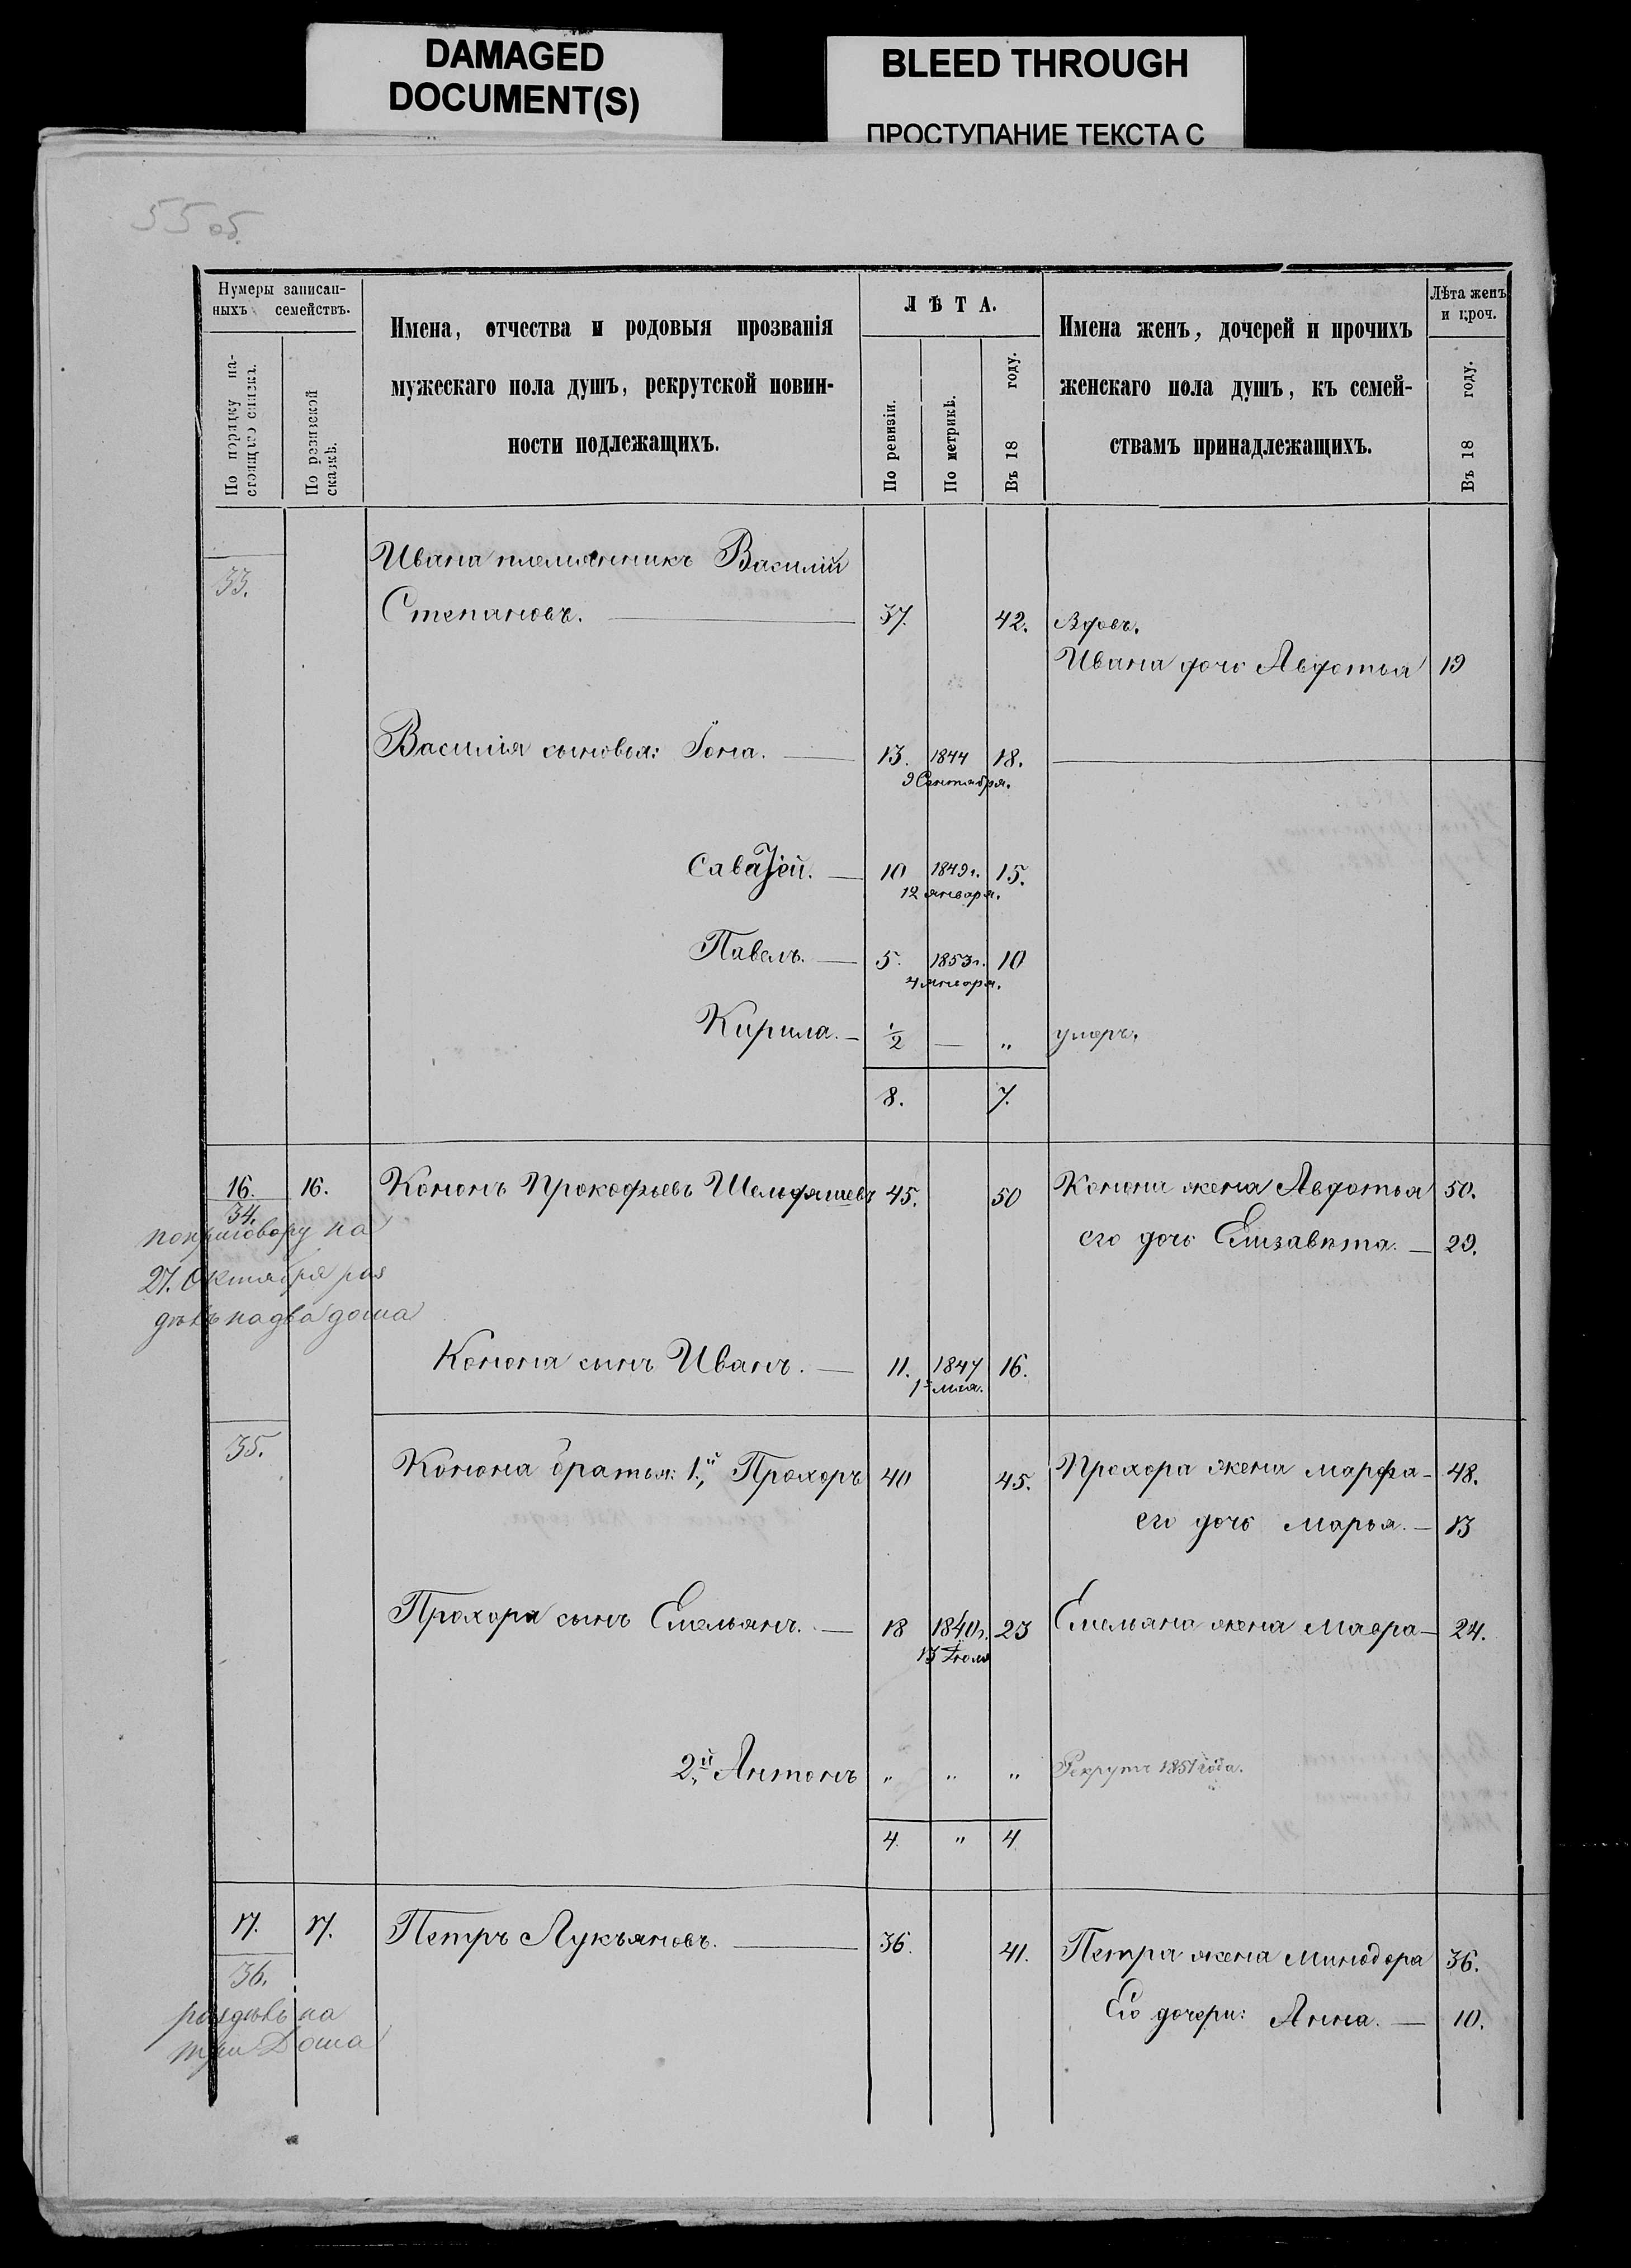 DAMAGED
DOCUMENT(S)
BLEED THROUGH
ПРОСТУПАНИЕ ТЕКСТА С
55 об.
Нумеры записан-
ныхъ семействъ.
По порядку на-
стоящаго списка.
По ревизской
сказкѣ.
Имена, отчества и родовыя прозванія
мужескаго пола душъ, рекрутской повин-
ности подлежащихъ.
ЛѢТА.
По ревизіи.
По метрикѣ.
Въ 18 году.
Имена женъ, дочерей и прочихъ
женскаго пола душъ, къ семей-
ствамъ принадлежащихъ.
Лѣта женъ
и проч.
Въ 18 году.
33. Ивана племянникъ Василій
Степановъ. — 37. 42. Вдовъ.
Ивана дочь Авдотья 19
Василія сыновья: Іона. — 13. 1844 18.
9 Сентября.
Саватѣй. — 10 1849г. 15.
12 января.
Павелъ. — 5. 1853г. 10
4 января.
Кирила. — 1/2 — „ умеръ.
8. 7.
16. 16. Кононъ Прокофьевъ 45. 50 Конона жена Авдотья 50.
34.
его дочь Елизавѣта. — 29.
по приговору на
27. Октября раз
дѣлъ на два дома
Конона сынъ Иванъ. — 11. 1847 16.
1й мая.
35. Конона братья: 1й, Прохоръ 40 45. Прохора жена Марфа — 48.
его дочь Марья. — 13
Прохора сынъ Емельянъ. — 18 1840г. 23 Емельяна жена Мавра — 24.
13 Іюля
2й Антонъ „ „ „ Рекрутъ 1851 года.
4. „ 4
17. 17. Петръ Лукъяновъ. — 36. 41. Петра жена Минодора 36.
36.
Его дочери: Анна. — 10.
раздѣлъ на
три Дома